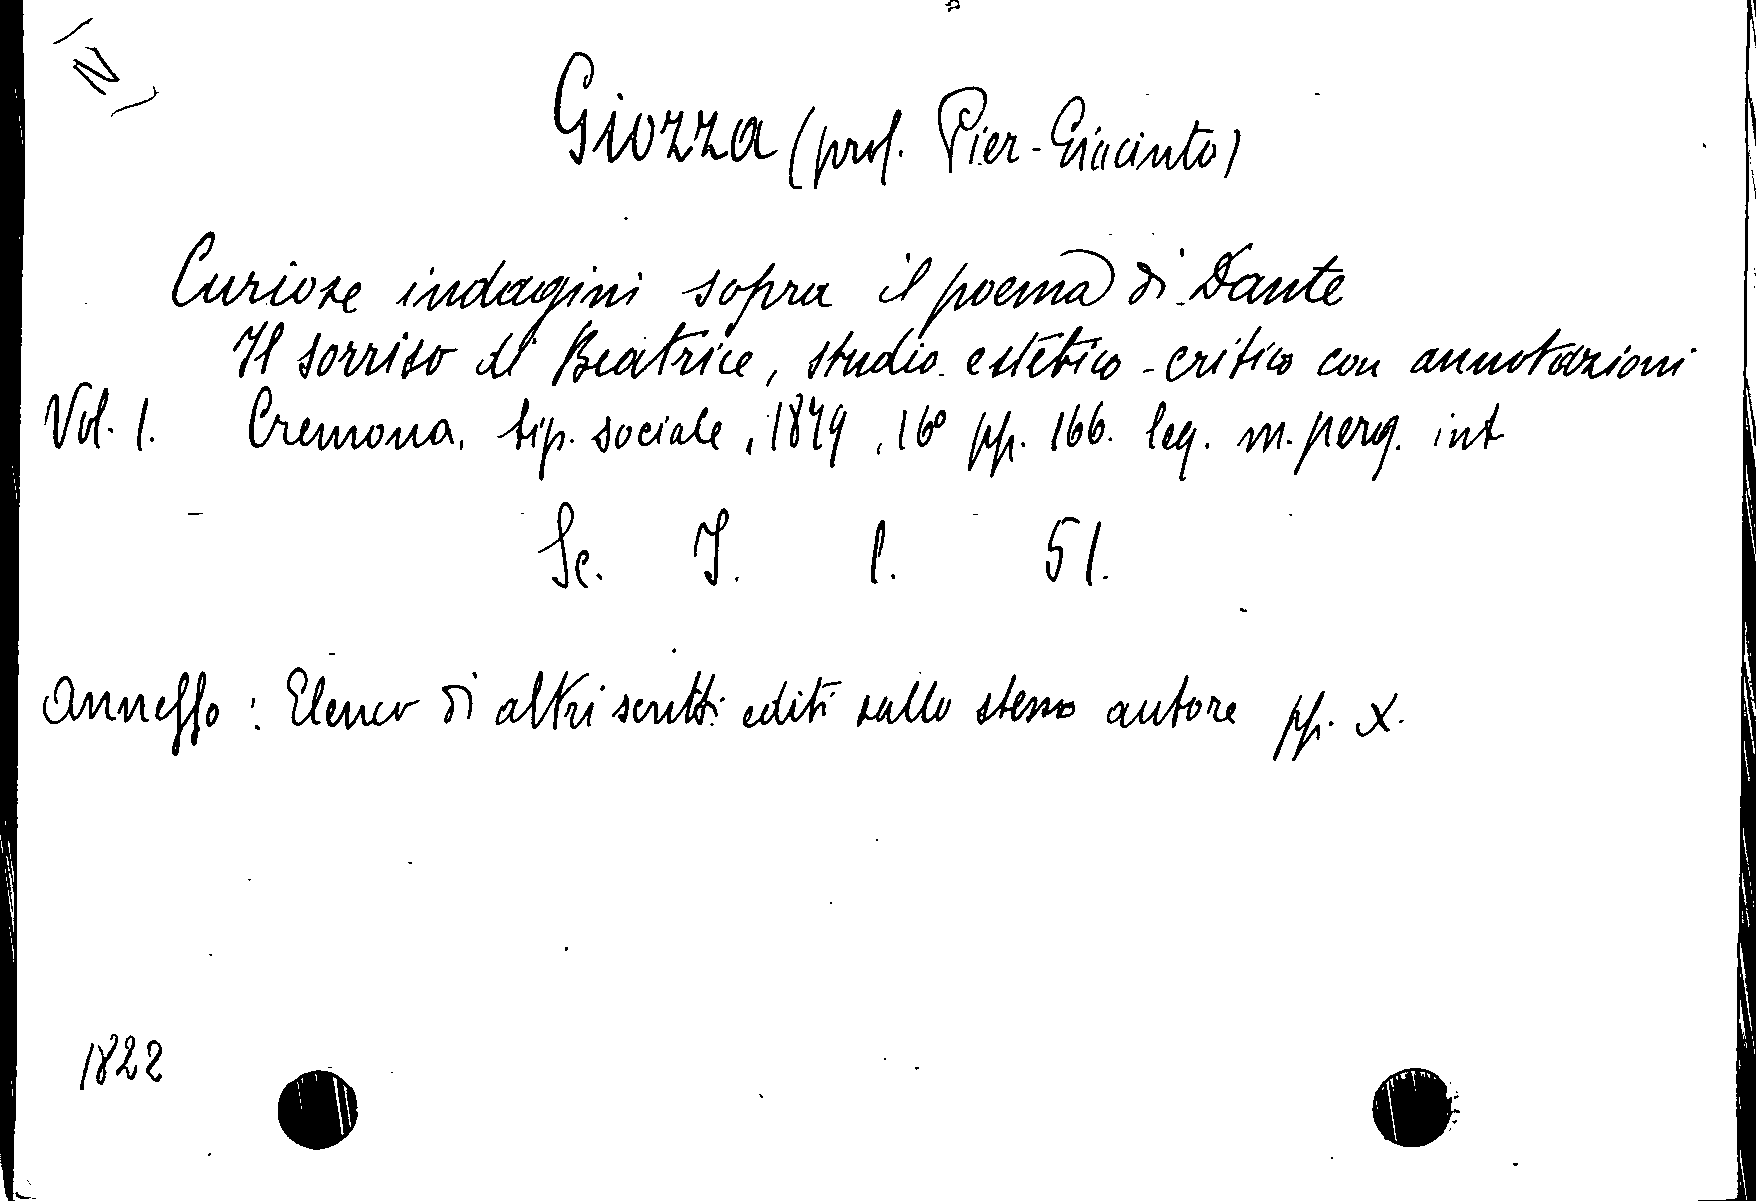 (N)
Giozza (prof. Pier-Giacinto)
Curiose indagini sopra il poema di Dante
Il sorriso di Beatrice, studio estetico-critico con annotazioni
Vol. 1. Cremona, tip. sociale, 1879, 16º pp. 166. leg. m. perg. int
Sc. I. 1. 51.
Annesso : Elenco di altri scritti editi dallo stesso autore pp. X.
1822